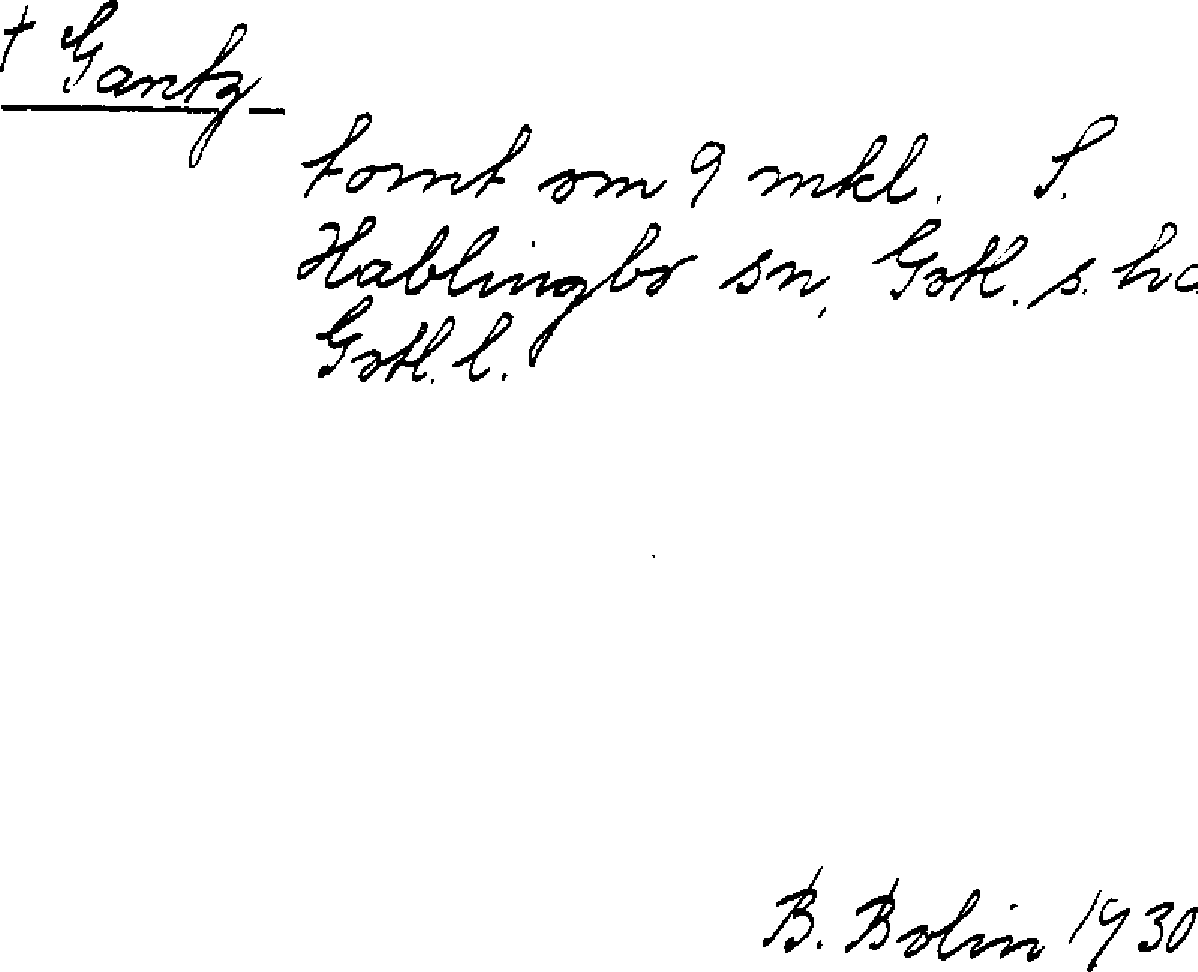 † Gantz
tomt om 9 mkl. S.
Hablingbo sn, Gotl. s. hd
Gotl. l.
B. Bolin 1930